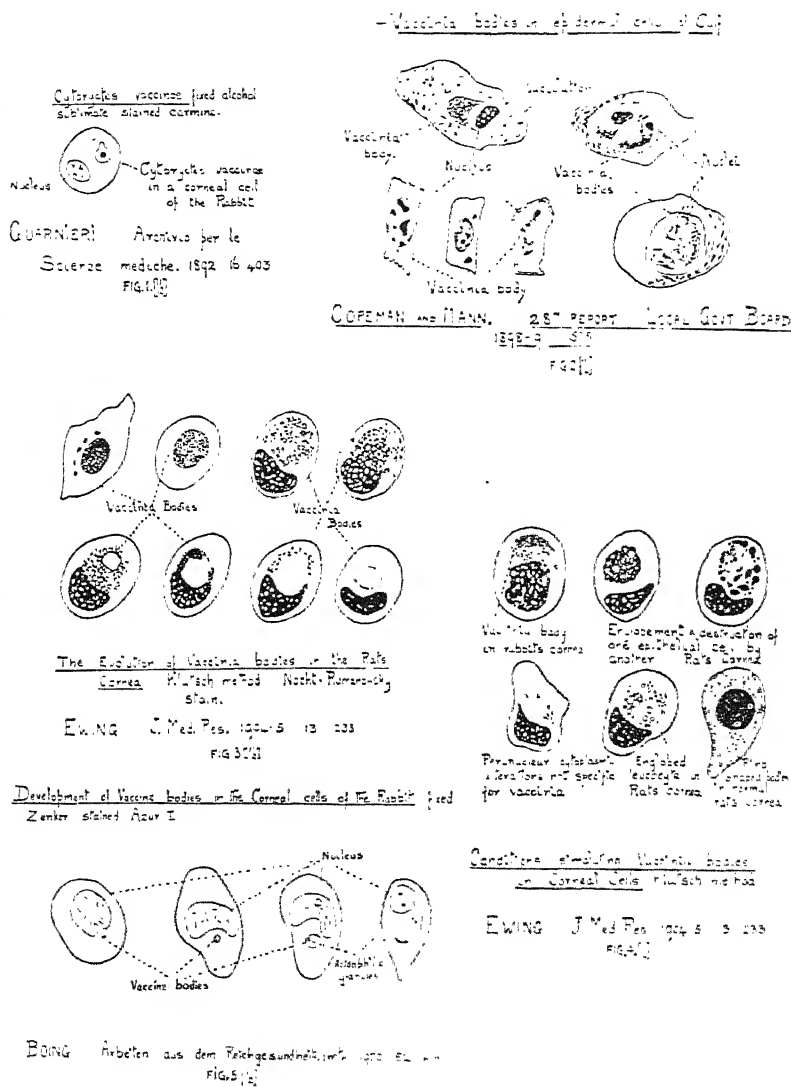 Cytoryctes vaccinae fixed alcohol
sublimate stained carmine.
Nucleus
Cytoryctes vaccinae
in a corneal cell
of the Rabbit
GUARNIERI Archivio per le
Scienze mediche. 1892 16 403
FIG.1.
Vaccinia bodies in epidermal cells of Calf
Vaccinia
body.
Nucleus
Vaccinia
bodies
Nuclei
Vaccinia body
COPEMAN AND MANN. 28TH REPORT LOCAL GOVT BOARD
1898-9
FIG 2
Vaccinia Bodies
Vaccinia
Bodies
The Evolution of Vaccinia bodies in the Rats
Cornea Klatsch method Nocht-Romanowsky
stain.
EWING J. Med. Res. 1904-5 13 233
FIG 3
Vaccinia body
in rabbits cornea
Englobement & destruction of
one epithelial cell by
another Rats cornea
Perinuclear cytoplasmic
alterations not specific
for vaccinia
Englobed
leucocyte in
Rats cornea
in normal
rats cornea
Conditions simulating Vaccinia bodies
in Corneal Cells Klatsch method
EWING J Med Res 1904 5 13 233
FIG.4
Development of Vaccine bodies in the Corneal cells of the Rabbit fixed
Zenker stained Azur I
Nucleus
Vaccine bodies
granules
BOING Arbeiten aus dem Reichgesundheit.amt. 1920 52
FIG.5